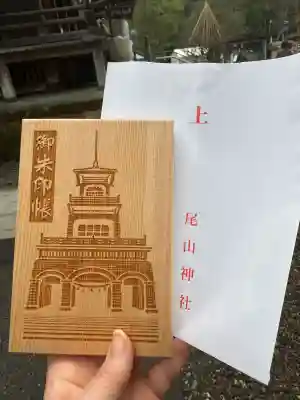 御朱印帳
上
尾山神社